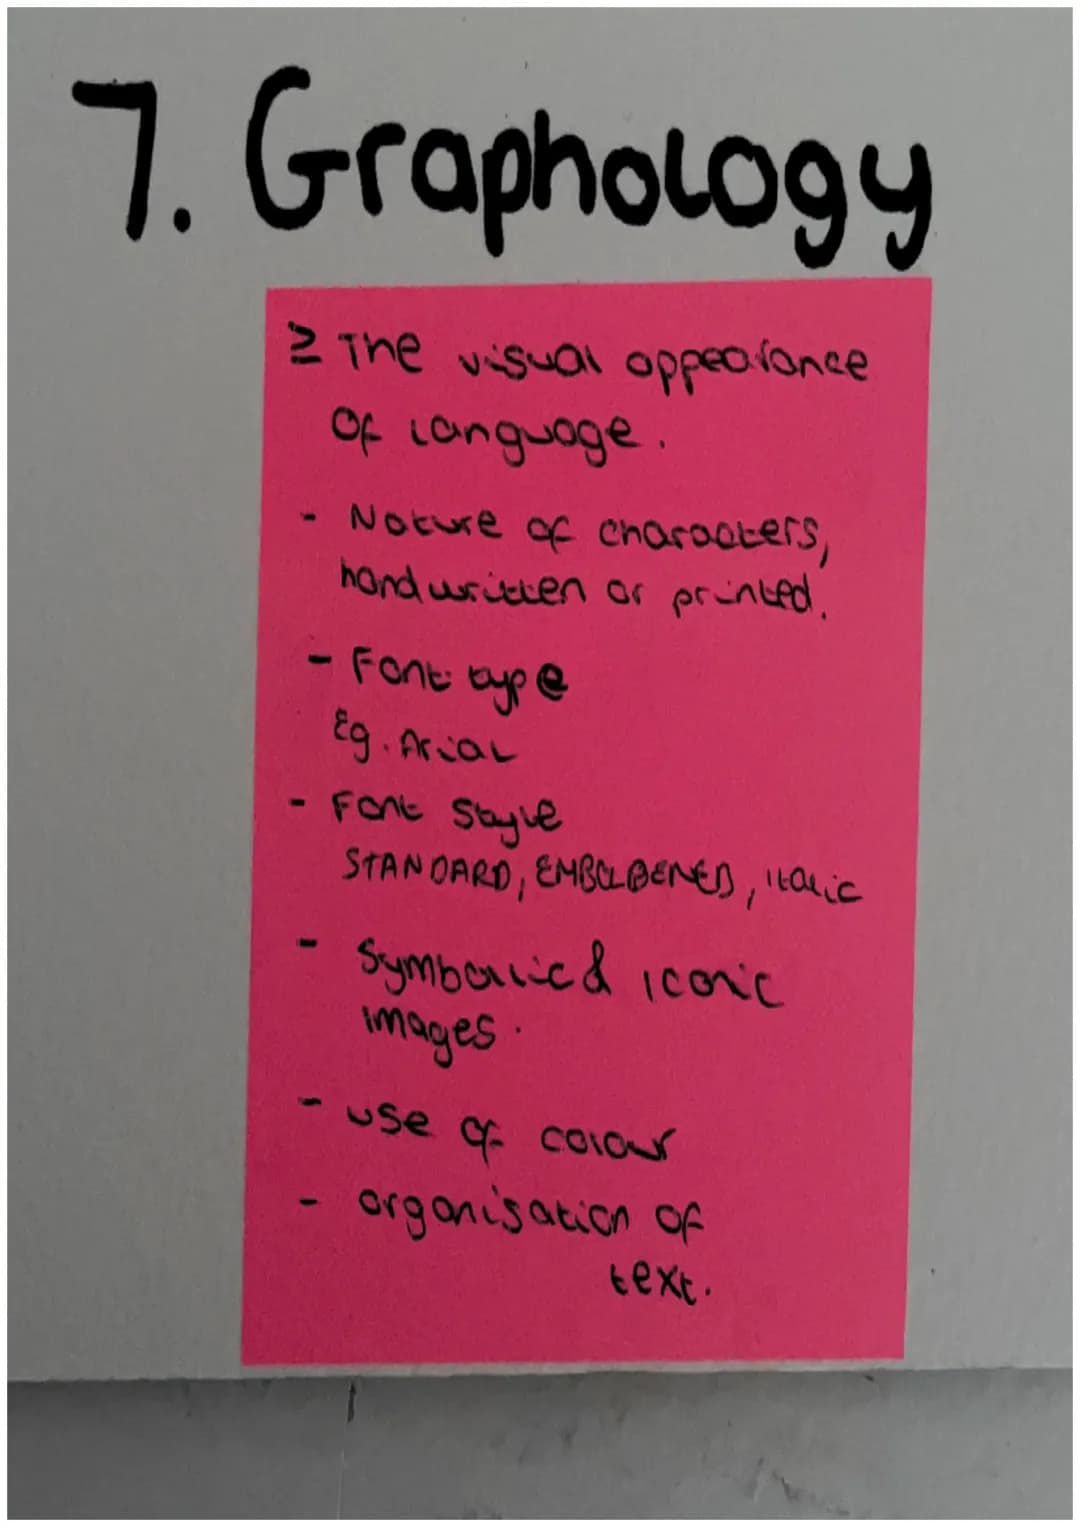 7. Graphology
≥ The visual appearance
of language.
- Nature of characters,
handwritten or printed.
- Font type
Eg. Arial
- Font Style
STANDARD, EMBOLDENED, italic
- Symbolic & iconic
images.
- use of colour
- organisation of
text.